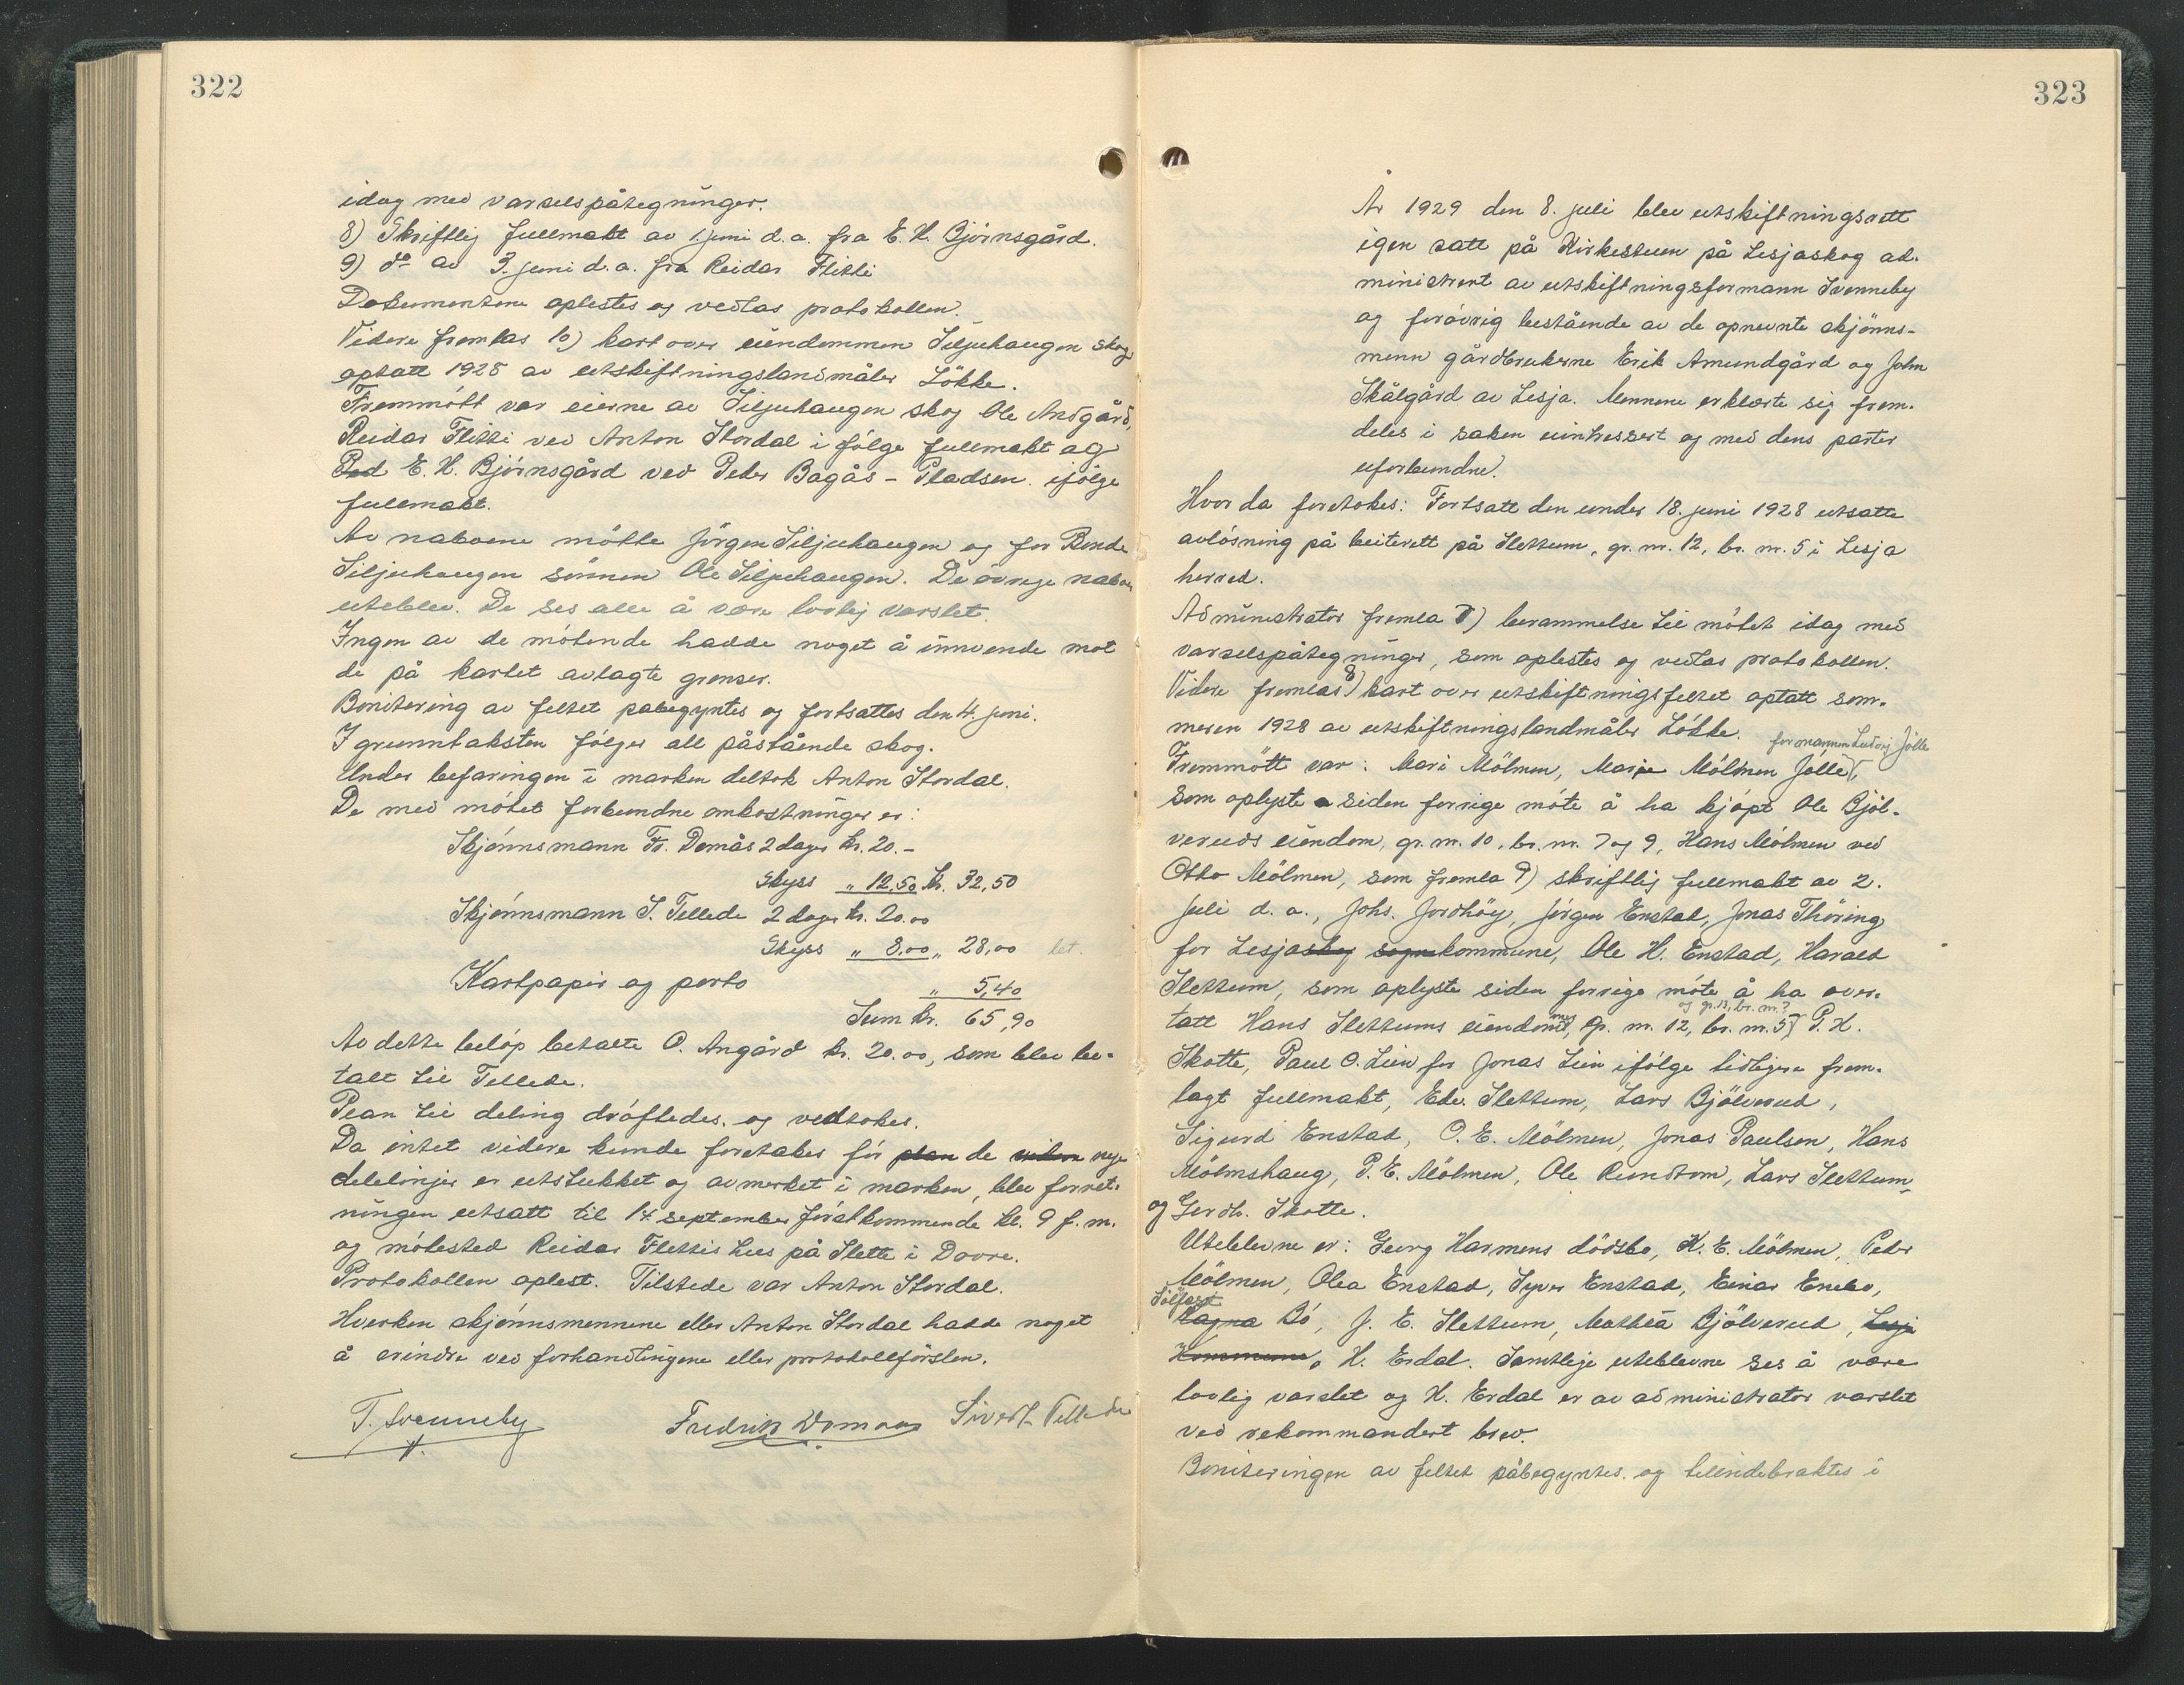 322
idag med varselspåtegninger.
8) Skriftlig fullmakt av 1. juni d.a. fra E. H. Björnsgård.
9) do av 3. juni d.a. fra Reidar Flitti
Dokumentene oplestes og vedlas protokollen.
Videre fremlas 10) kart over eiendommen Siljuhaugen skog
optatt 1928 av utskiftningslandmåler Lökke.
Fremmött var eierne av Siljuhaugen skog Ole Andgård,
Reidar Flitti ved Anton Stordal i fölge fullmakt og
Ped E. H. Björnsgård ved Peder Bagås - Pladsen ifölge
fullmakt.
Av naboene mötte Jörgen Siljuhaugen og for Bende
Siljuhaugen sönnen Ole Siljuhaugen. De övrige naboer
uteblev. De ses alle å være lovlig varslet.
Ingen av de mötende hadde noget å innvende mot
de på kartet avlagte grenser.
Bonitering av feltet påbegyntes og fortsattes den 4. juni.
I grunntaksten fölger all påstående skog.
Under befaringen i marken deltok Anton Stordal.
De med mötet forbundne omkostninger er:
Skjönnsmann Fr. Domås 2 dager kr. 20.-
Skyss " 12,50 kr. 32,50
Skjönnsmann S. Tellede 2 dager kr. 20.00
Skyss " 8,00 " 28,00 bet.
Kartpapir og porto " 5,40
Sum kr. 65,90
Av dette belöp betalte O. Angård kr. 20.00, som blev be-
talt til Tellede.
Plan til deling dröftedes og vedtokes.
Da intet videre kunde foretakes för plan de videre nye
delelinjer er utstukket og avmerket i marken, blev forret-
ningen utsatt til 14 september förstkommende kl. 9 f.m.
og mötested Reidar Flittis hus på Slette i Dovre.
Protokollen oplest. Tilstede var Anton Stordal.
Hverken skjönnsmennene eller Anton Stordal hadde noget
å erindre ved forhandlingene eller protokollförslen.
T. Svenneby Fredrik Domaas Sivert Tellede
323
År 1929 den 8. juli blev utskiftningsrett
igen satt på Kirkestuen på Lesjaskog ad-
ministrert av utskiftningsformann Svenneby
og forövrig bestående av de opnevnte skjönns-
menn gårdbrukerne Erik Amundgård og John
Skålgård av Lesja. Mennene erklærte sig frem-
deles i saken uintressert og med dens parter
uforbundne.
Hvor da foretokes: Fortsatt den under 18. juni 1928 utsatte
avlösning på beiterett på Slettum, gr. nr. 12, br. nr. 5 i Lesja
herred.
Administrator fremla 7) berammelse til mötet idag med
varselspåtegninger, som oplestes og vedlas protokollen.
Videre fremlas 8) kart over utskiftningsfeltet optatt som-
meren 1928 av utskiftningslandmåler Lökke.
formannen Ludvig Jölle
Fremmött var: Mari Mölmen, Marie Mölmen Jölle,
som oplyste siden forrige möte å ha kjöpt Ole Bjöl-
veruds eiendom, gr. nr. 10, br. nr. 7 og 9, Hans Mölmen ved
Otto Mölmen, som fremla 9) skriftlig fullmakt av 2.
juli d.a., Johs. Jordhöy, Jörgen Enstad, Jonas Thöring
for Lesjaskog sognekommune, Ole H. Enstad, Harald
Slettum, som oplyste siden forrige möte å ha over-
og gr. 13, br. nr. ?
tatt Hans Slettums eiendommer, gr. nr. 12, br. nr. 5, P. H.
Skotte, Paul O. Lien for Jonas Lien ifölge tidligere frem-
lagt fullmakt, Edv. Slettum, Lars Bjölverud,
Sigurd Enstad, O. E. Mölmen, Jonas Paulsen, Hans
Mölmshaug, P. E. Mölmen, Ole Rundtom, Lars Slettum
og Gerdh. Skotte.
Uteblevne er: Georg Harmens dödsbo, K. E. Mölmen, Peder
Mölmen, Olea Enstad, Syver Enstad, Einar Enebo,
Sölfest
Ragna Bö, J. E. Slettum, Mathea Bjölverud, Lesja
Kommune, H. Erdal. Samtlige uteblevne ses å være
lovlig varslet og H. Erdal er av administrator varslet
ved rekommandert brev.
Boniteringen av feltet påbegyntes og tilendebraktes i